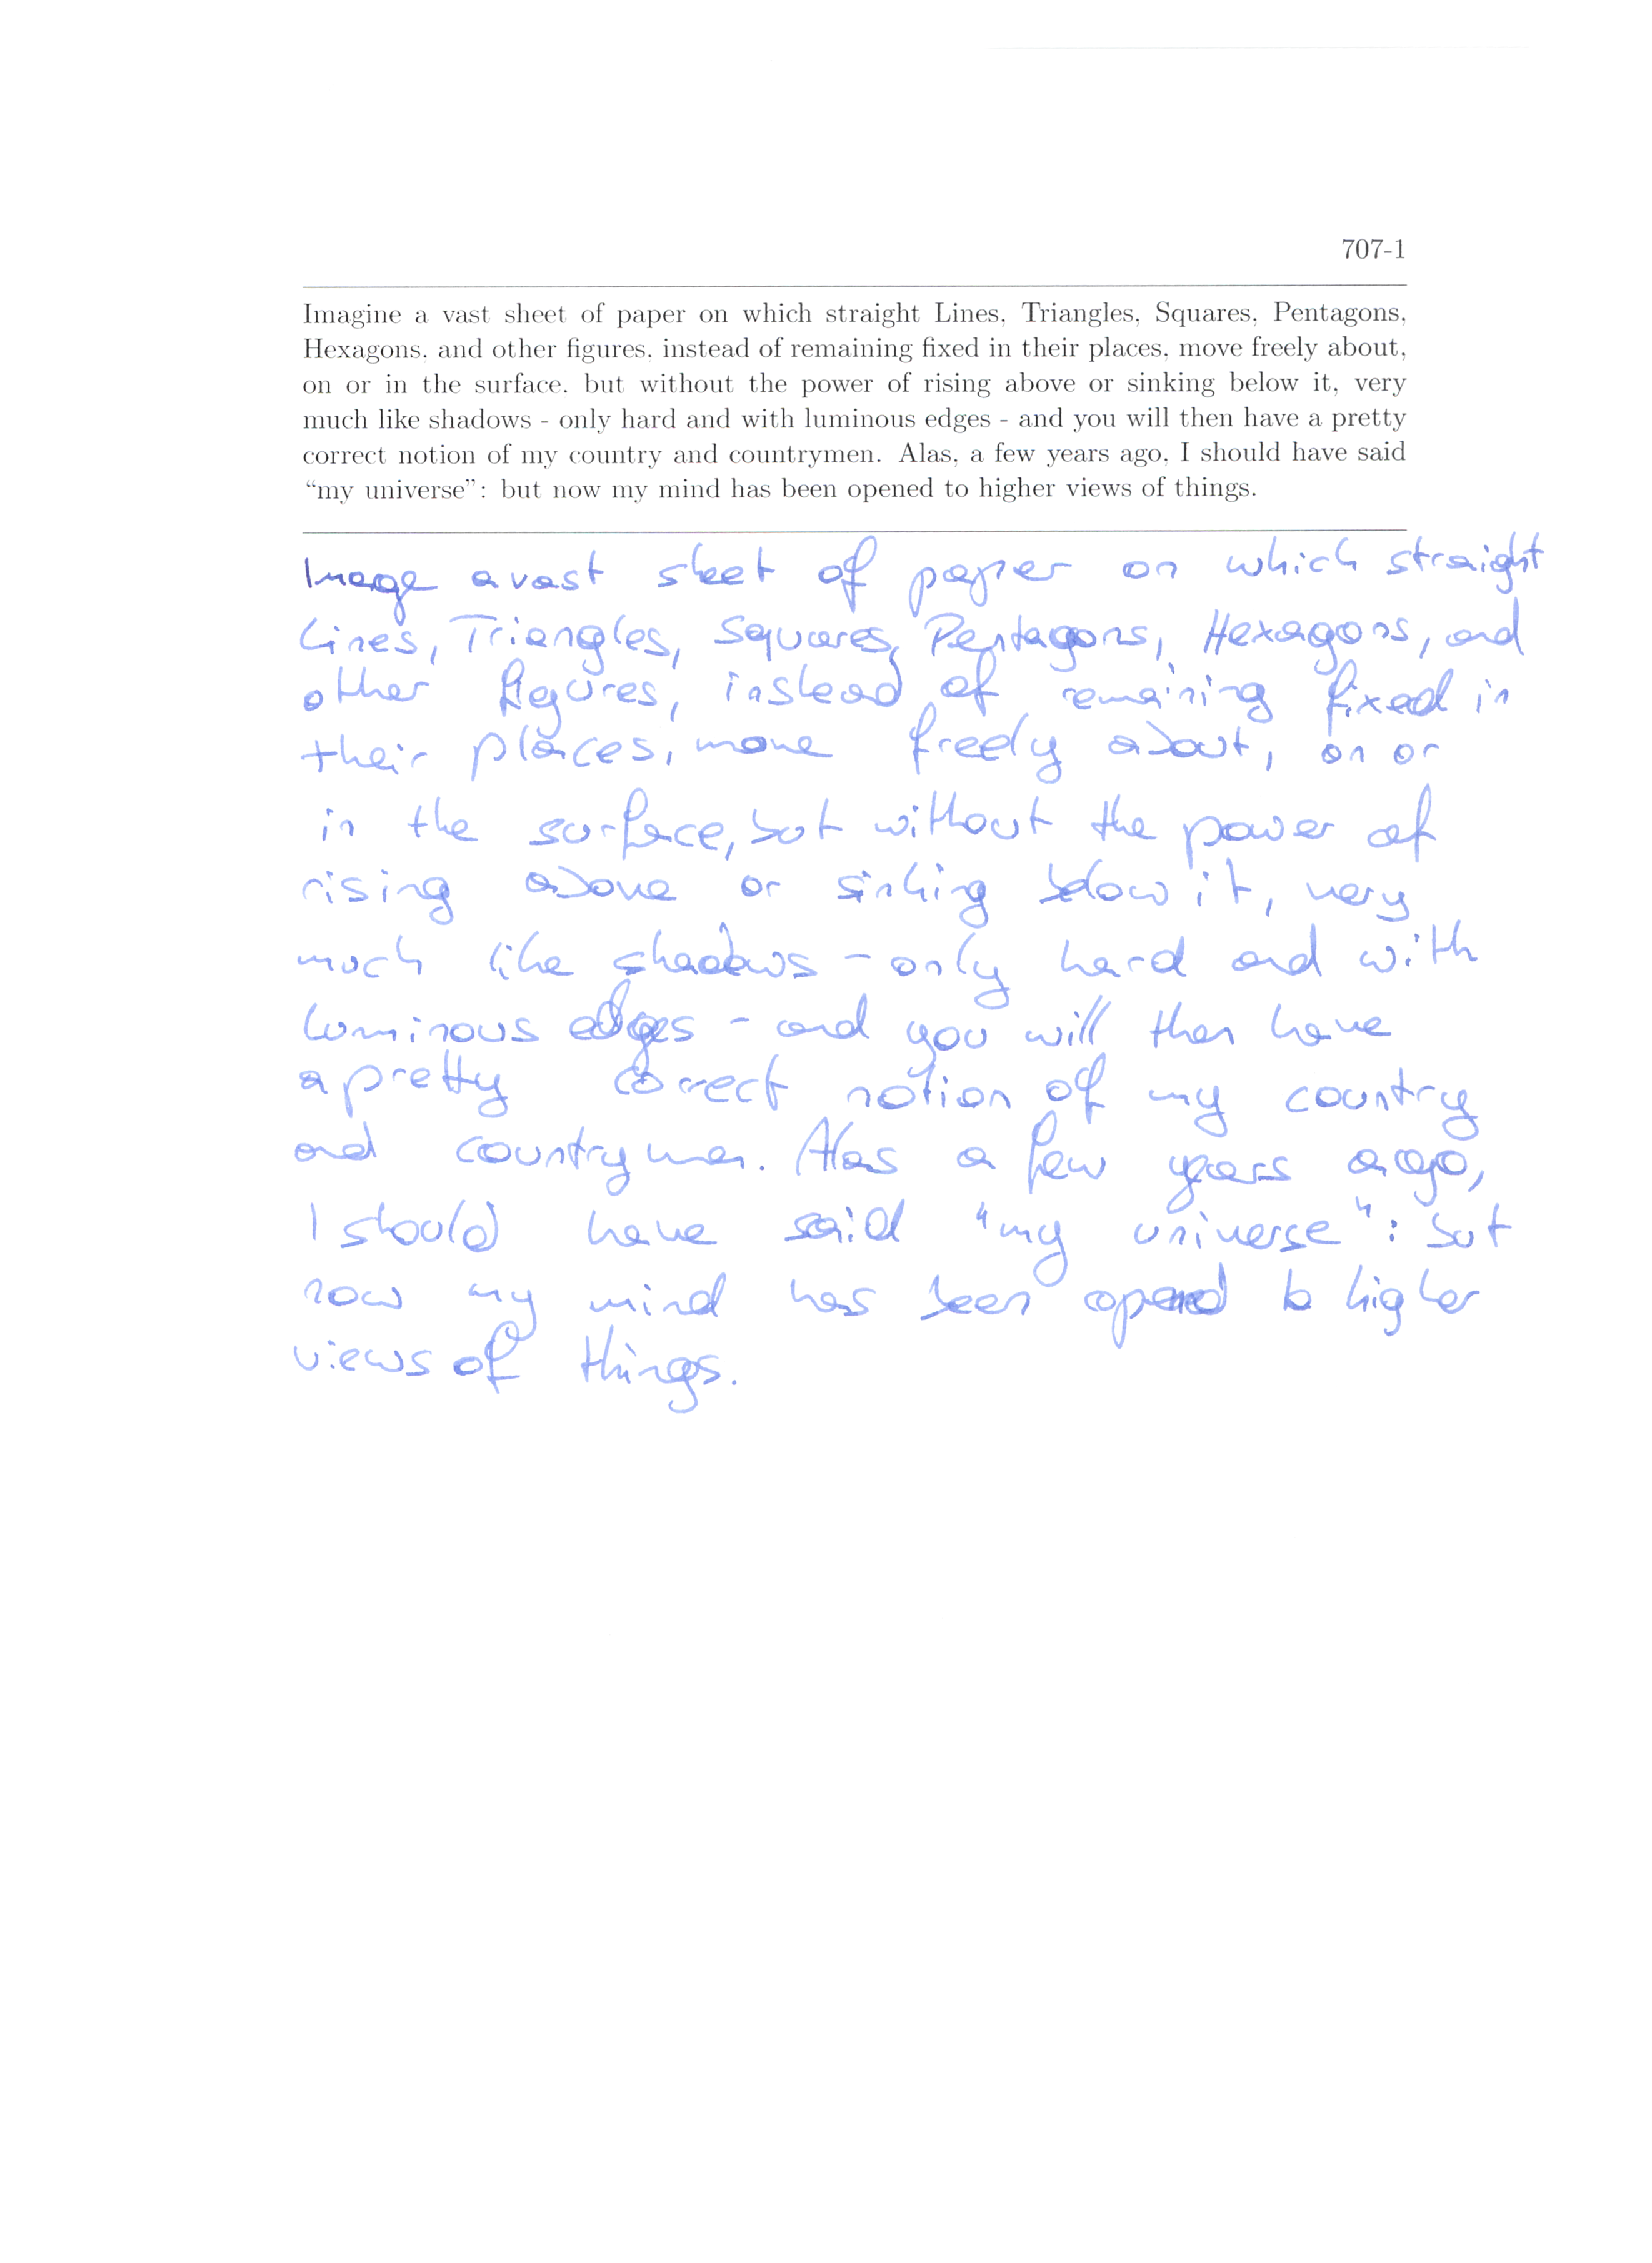 707-1
Imagine a vast sheet of paper on which straight Lines, Triangles, Squares, Pentagons,
Hexagons, and other figures, instead of remaining fixed in their places, move freely about,
on or in the surface, but without the power of rising above or sinking below it, very
much like shadows - only hard and with luminous edges - and you will then have a pretty
correct notion of my country and countrymen. Alas, a few years ago, I should have said
“my universe”: but now my mind has been opened to higher views of things.
Image a vast sheet of paper on which straight
Lines, Triangles, Squares, Pentagons, Hexagons, and
other figures, instead of remaining fixed in
their places, move freely about, on or
in the surface, but without the power of
rising above or sinking below it, very
much like shadows - only hard and with
luminous edges - and you will then have
a pretty correct notion of my country
and countrymen. Alas a few years ago,
I should have said "my universe": but
now my mind has been opened to higher
views of things.